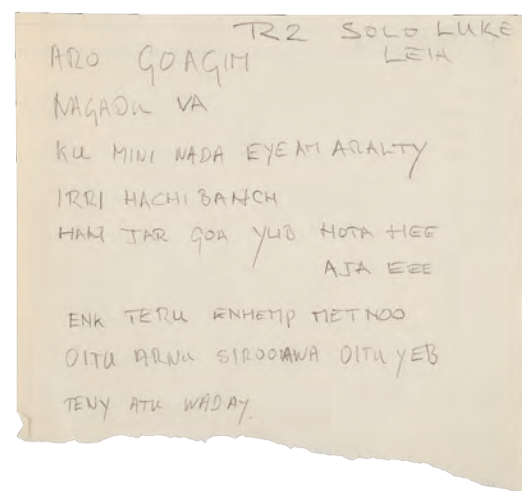 R2 SOLO LUKE
LEIA
ARO GOAGIM
NAGADU VA
KU MINI NADA EYEAM ARALTY
IRRI HACHI BANCH
HAN JAR GOA YUB HOTA HEE
AJA EEE
ENK TERU ENHEMP METNOO
OITU ARNU OITU YEB
TENY ATU WADAY.